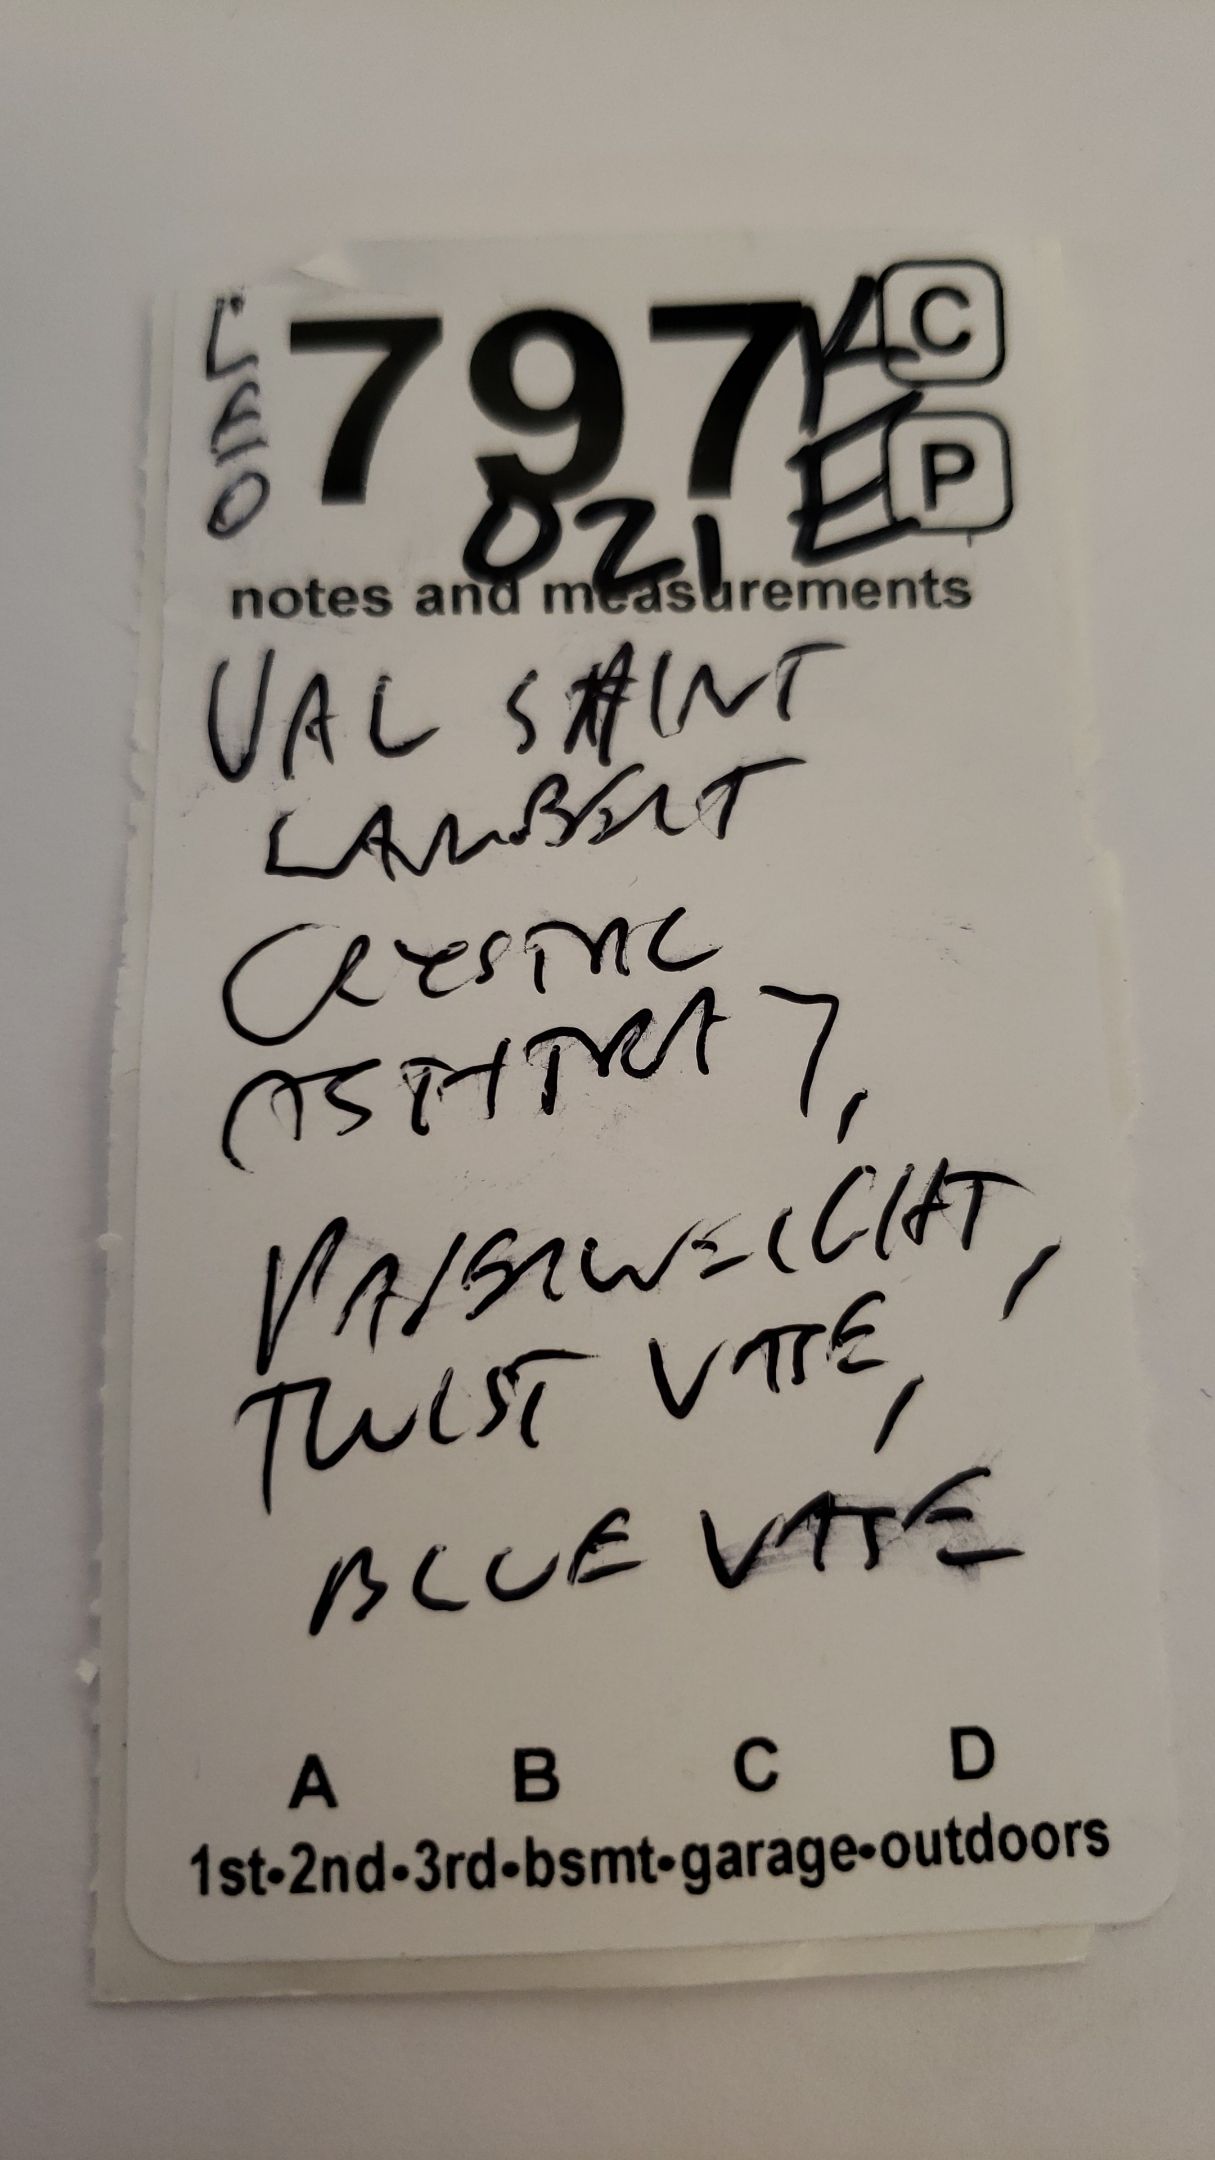 LEO
797
C
P
021
notes and measurements
VAL SAINT
LAMBERT
CRYSTAL
ASHTRAY,
PAPERWEIGHT,
TWIST VASE,
BLUE VASE
A B C D
1st•2nd•3rd•bsmt•garage•outdoors